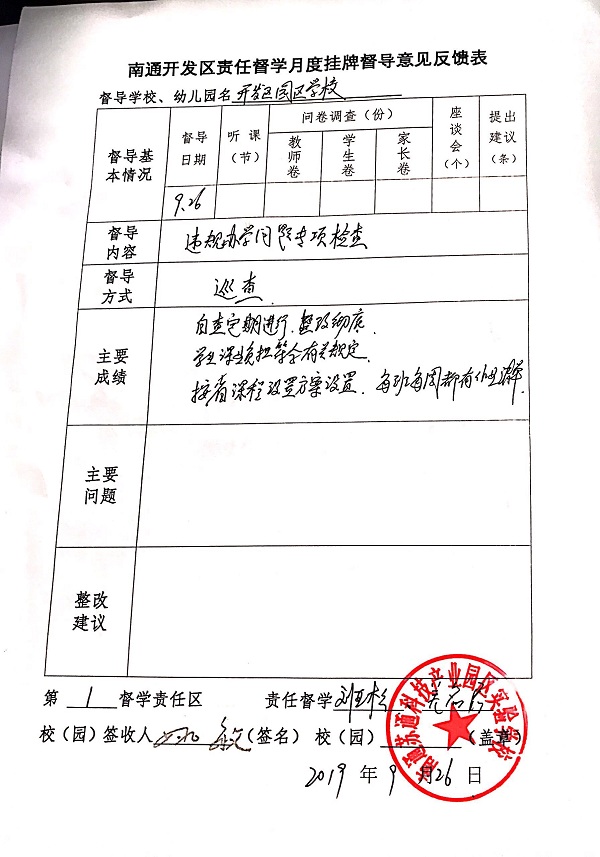 南通开发区责任督学月度挂牌督导意见反馈表
督导学校、幼儿园名 开发区园区学校
督导基本情况
督导日期
听课（节）
问卷调查（份）
教师卷
学生卷
家长卷
座谈会（个）
提出建议（条）
9.26
督导内容
违规办学问题专项检查
督导方式
巡查
主要成绩
自查定期进行、整改彻底.
学生课业负担符合有关规定.
按省课程设置方案设置、每班每周都有体卫课
主要问题
整改建议
第 1 督学责任区 责任督学
校（园）签收人 （签名） 校（园） （盖章）
2019 年 9 月 26 日
南通苏通科技产业园区实验学校